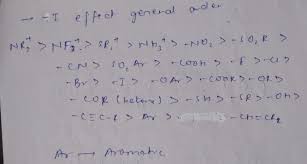 → -I effect general order
NR3+ > NF3+ > SR2+ > NH3+ > -NO2 > -SO2R >
-CN > SO2Ar > -COOH > -F > -Cl >
-Br > -I > -OAr > -COOR > -OR >
-COR (ketone) > -SH > -SR > -OH >
-C≡C-R > Ar > -CH=CH2
Ar → Aromatic